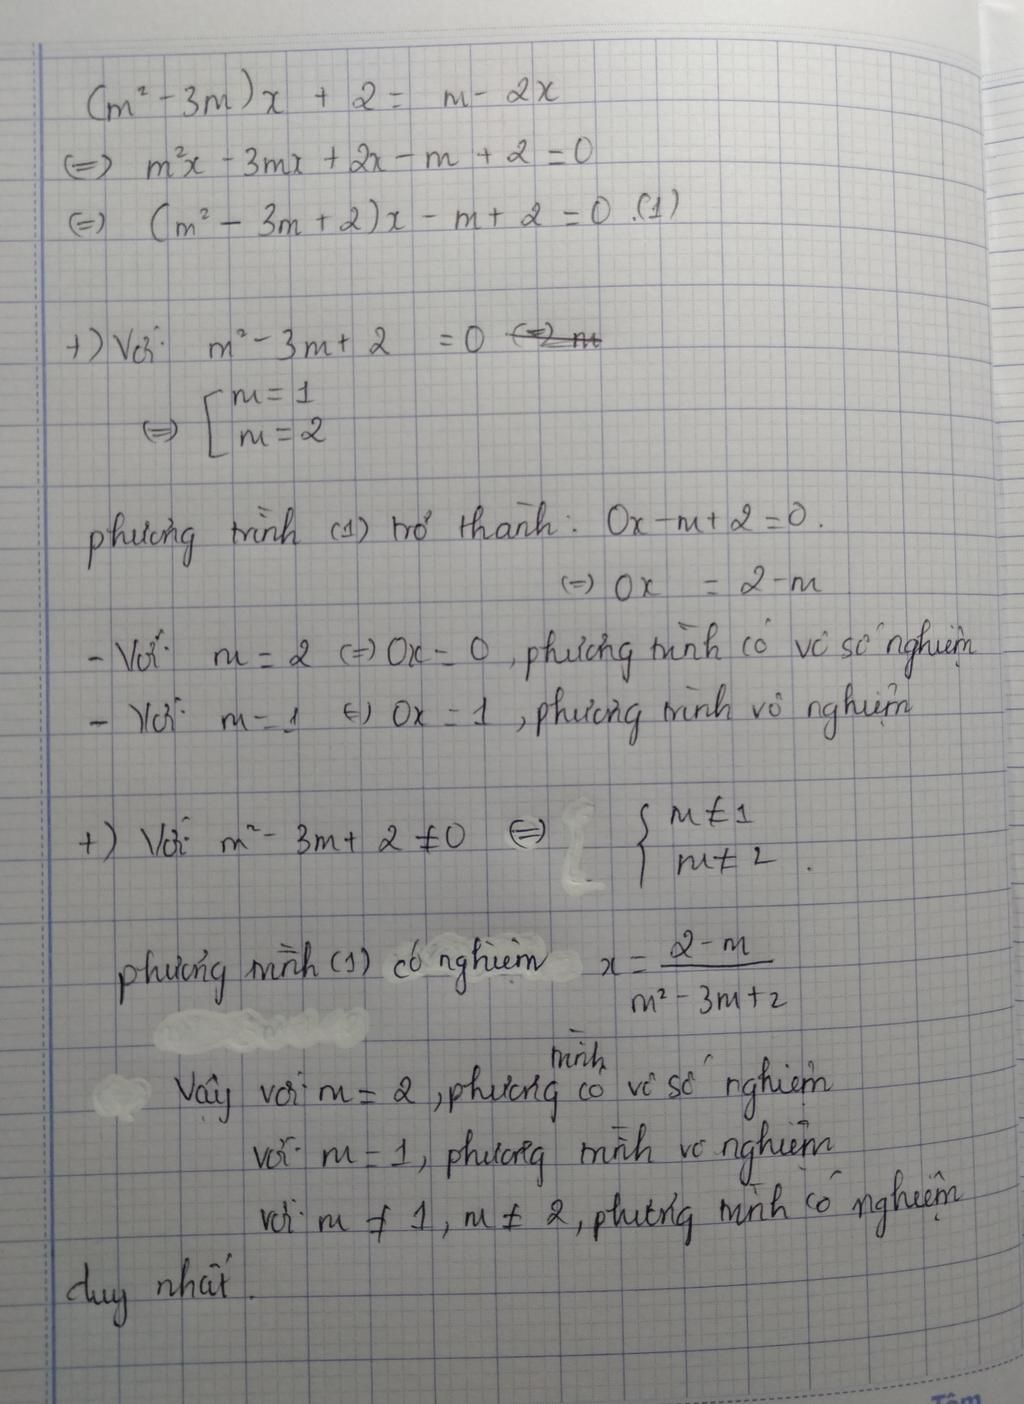 (m² - 3m)x + 2 = m - 2x
(=) m²x - 3mx + 2x - m + 2 = 0
(=) (m² - 3m + 2)x - m + 2 = 0 (1)
+) Với m² - 3m + 2 = 0 (=) m
(=) [ m = 1
m = 2
phương trình (1) trở thành: 0x - m + 2 = 0.
(=) 0x = 2 - m
- Với m = 2 (=) 0x = 0, phương trình có vô số nghiệm
- Với m = 1 (=) 0x = 1, phương trình vô nghiệm
+) Với m² - 3m + 2 ≠ 0 (=) { m ≠ 1
m ≠ 2.
phương trình (1) có nghiệm x = (2 - m)/(m² - 3m + 2)
Vậy với m = 2, phương trình có vô số nghiệm
với m = 1, phương trình vô nghiệm
với m ≠ 1, m ≠ 2, phương trình có nghiệm
duy nhất.
Tâm